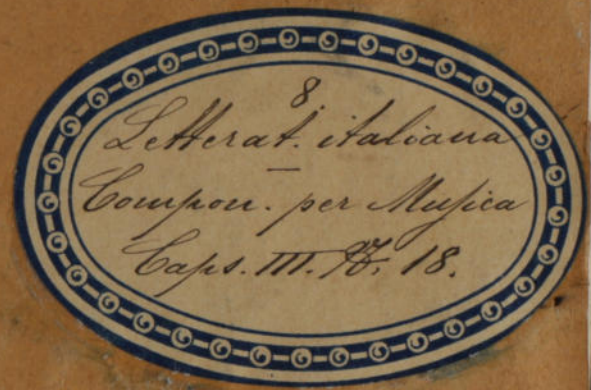 8.
Letterat. italiana
—
Compon. per Musica
Caps. III. N. 18.